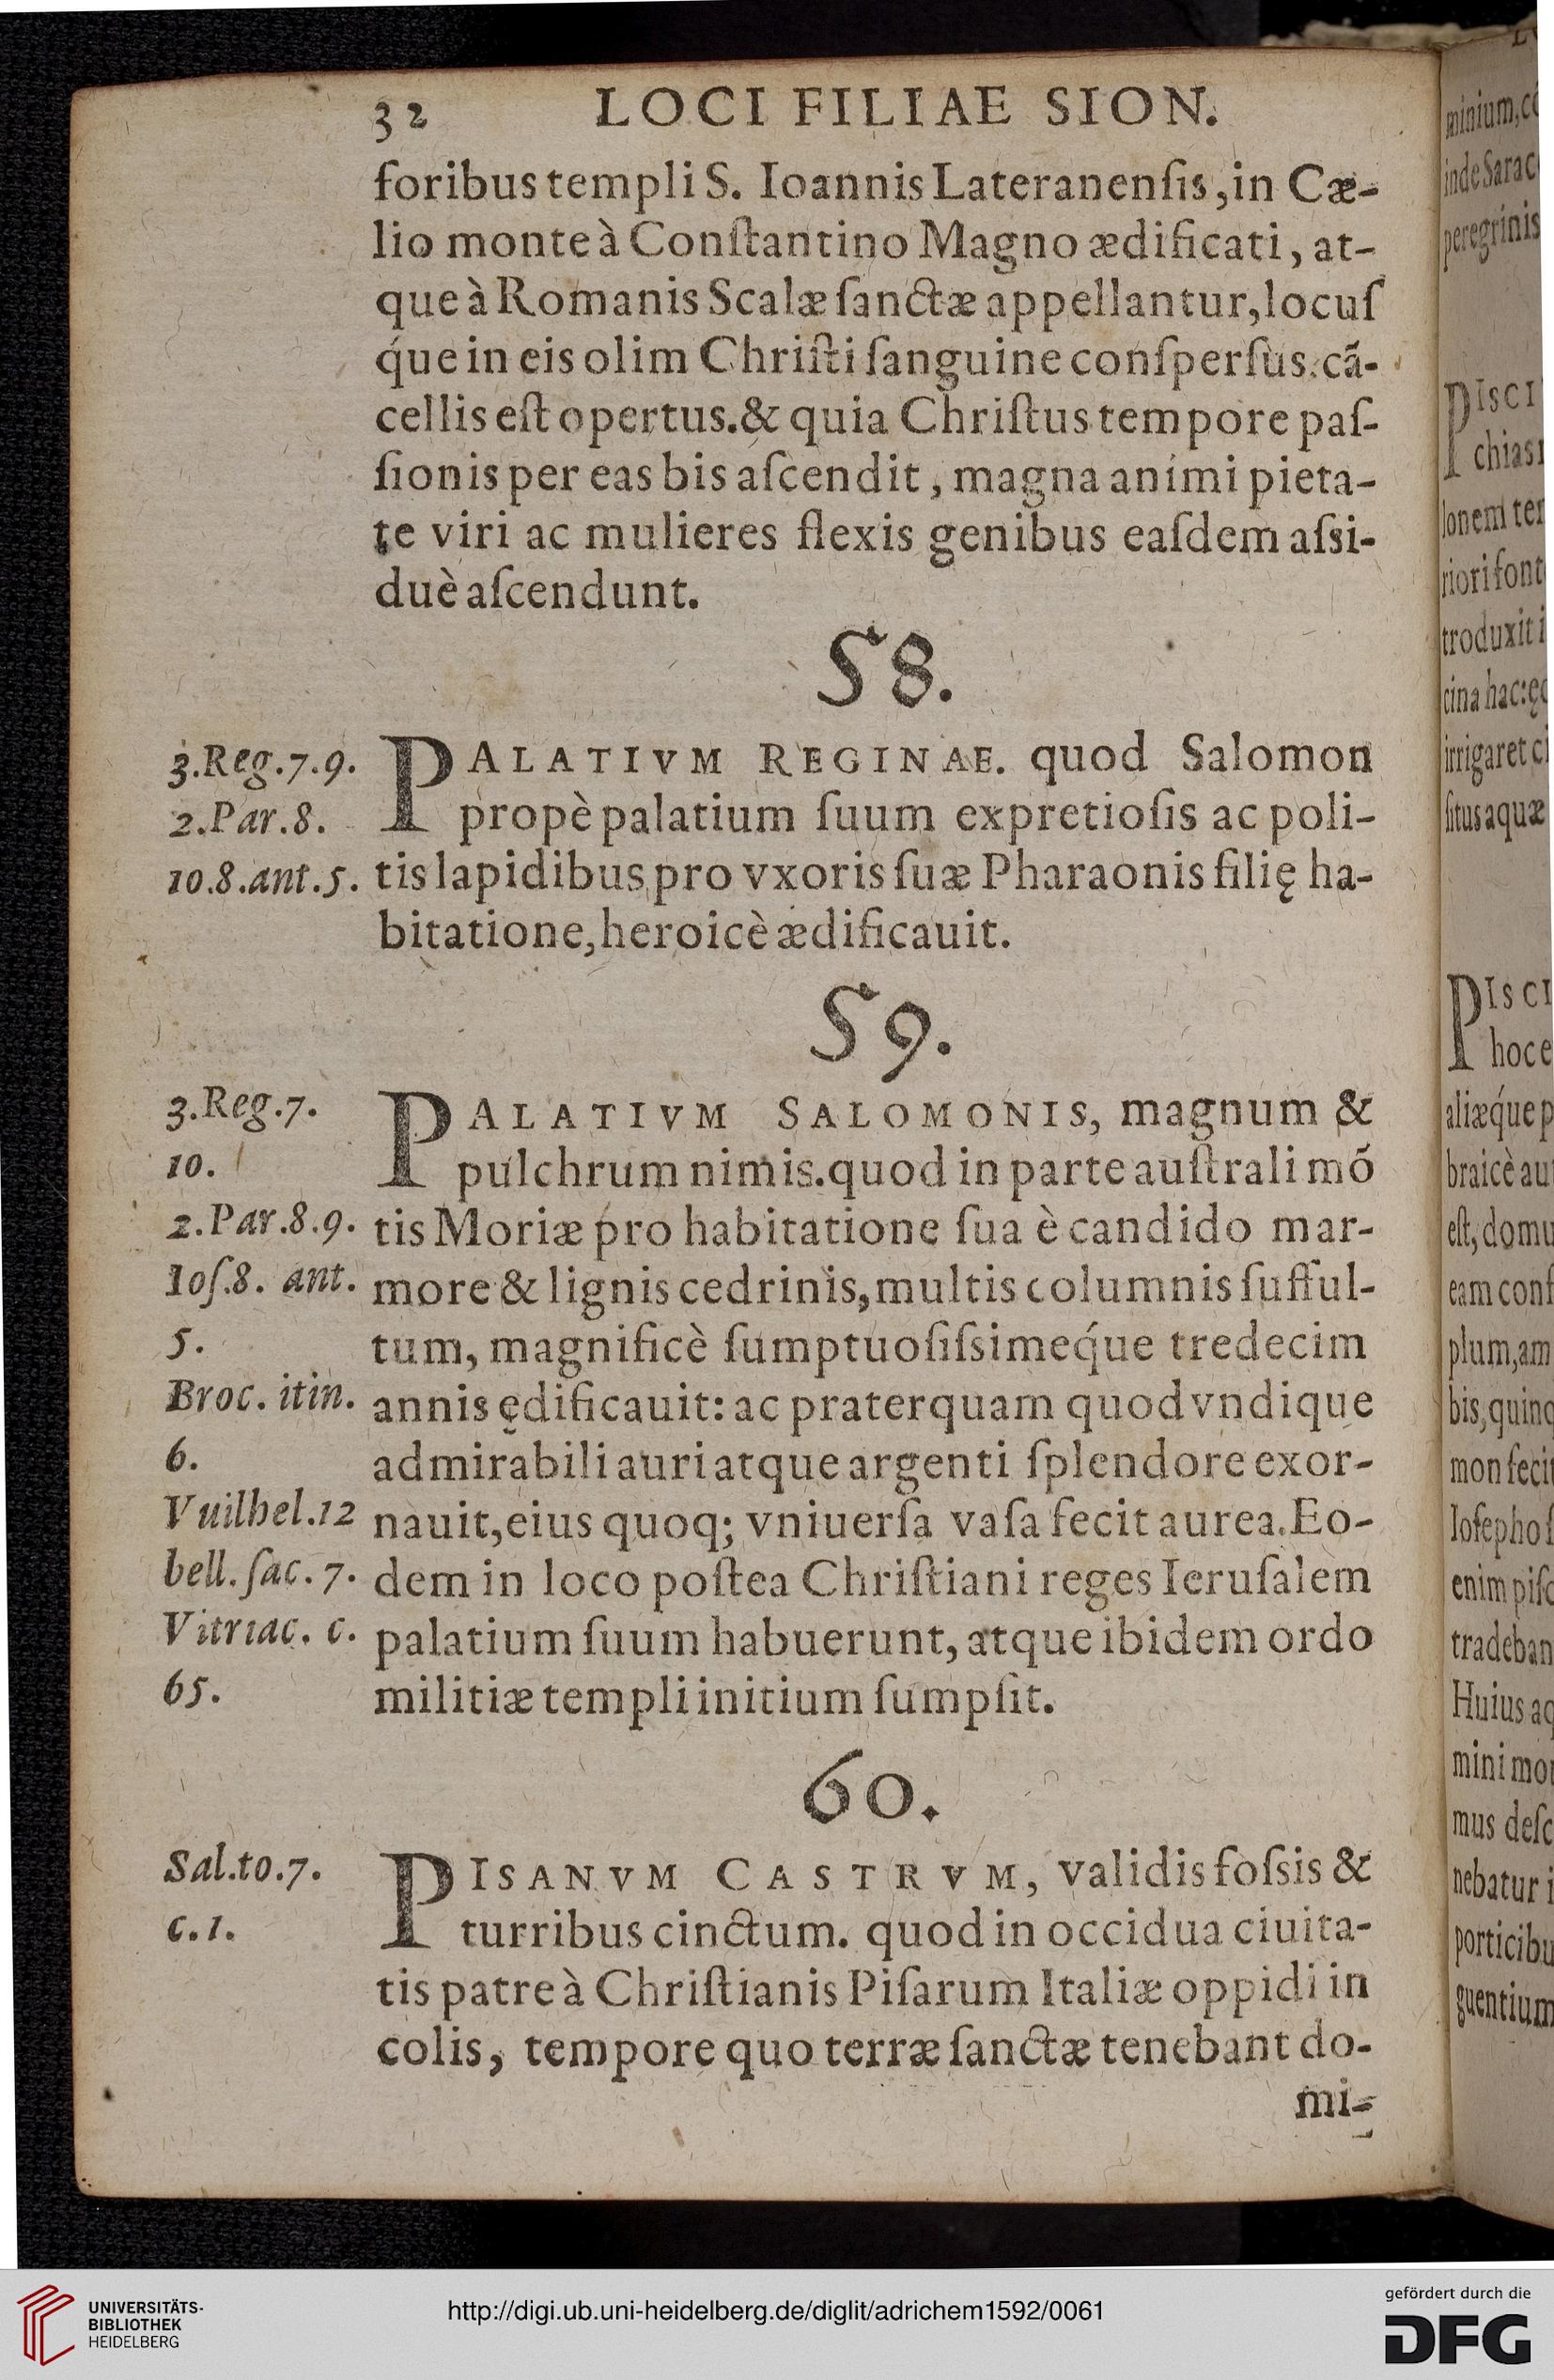 32 LOCI FILIAE SION.
foribus templi S. Ioannis Lateranenſis, in Cæ-
lio monte à Conſtantino Magno ædificati, at-
que à Romanis Scalæ ſanctæ appellantur, locuſ
q́ue in eis olim Chriſti ſanguine conſperſus. cã-
cellis eſt opertus. & quia Chriſtus tempore paſ-
ſionis per eas bis aſcendit, magna animi pieta-
te viri ac mulieres flexis genibus eaſdem aſsi-
duè aſcendunt.
58.
3. Reg. 7. 9.
2. Par. 8.
10. 8. ant. 5.
PALATIVM REGINAE. quod Salomon
propè palatium ſuum expretioſis ac poli-
tis lapidibus pro vxoris ſuæ Pharaonis filię ha-
bitatione, heroicè ædificauit.
59.
3. Reg. 7.
10.
2. Par. 8. 9.
Ioſ. 8. ant.
5.
Broc. itin.
6.
Vuilhel. 12
bell. ſac. 7.
Vitriac. c.
65.
PALATIVM SALOMONIS, magnum &
pulchrum nimis. quod in parte auſtrali mó
tis Moriæ pro habitatione ſua è candido mar-
more & lignis cedrinis, multis columnis ſufful-
tum, magnificè ſumptuoſiſsimeq́ue tredecim
annis ędificauit: ac praterquam quod vndique
admirabili auri atque argenti ſplendore exor-
nauit, eius quoq; vniuerſa vaſa fecit aurea. Eo-
dem in loco poſtea Chriſtiani reges Ieruſalem
palatium ſuum habuerunt, atque ibidem ordo
militiæ templi initium ſumpſit.
60.
Sal. to. 7.
c. 1.
PISANVM CASTRVM, validis foſsis &
turribus cinctum. quod in occidua ciuita-
tis patre à Chriſtianis Piſarum Italiæ oppidi in
colis, tempore quo terræ ſanctæ tenebant do-
mi-
minium,
inde Sarac
peregrinis
PISCI
chias
lonem ter
riori font
troduxit i
cina hac:
irrigaret ci
ſitus aquæ
PISCI
hoc e
aliæq́ue p
braicè au
eſt, domu
eam conſ
plum, am
bis, quinq
mon feci
Ioſepho ſ
enim piſc
tradeban
Huius aq
mini mo
mus deſc
nebatur i
porticibu
guentium
UNIVERSITÄTS-
BIBLIOTHEK
HEIDELBERG
http://digi.ub.uni-heidelberg.de/diglit/adrichem1592/0061
gefördert durch die
DFG